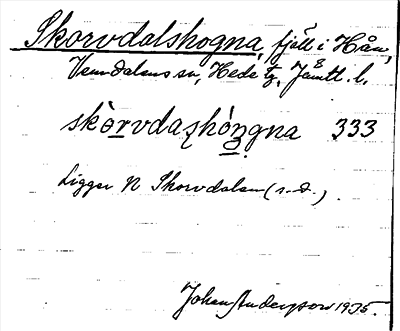 Skorvdalshogna, fjäll i Hån,
Vemdalens sn, Hede tg, Jämtl. l.
skòrvdaʂhóŋgna 333
Ligger N Skorvdalen (s.d.)
Johan Anderson 1935.